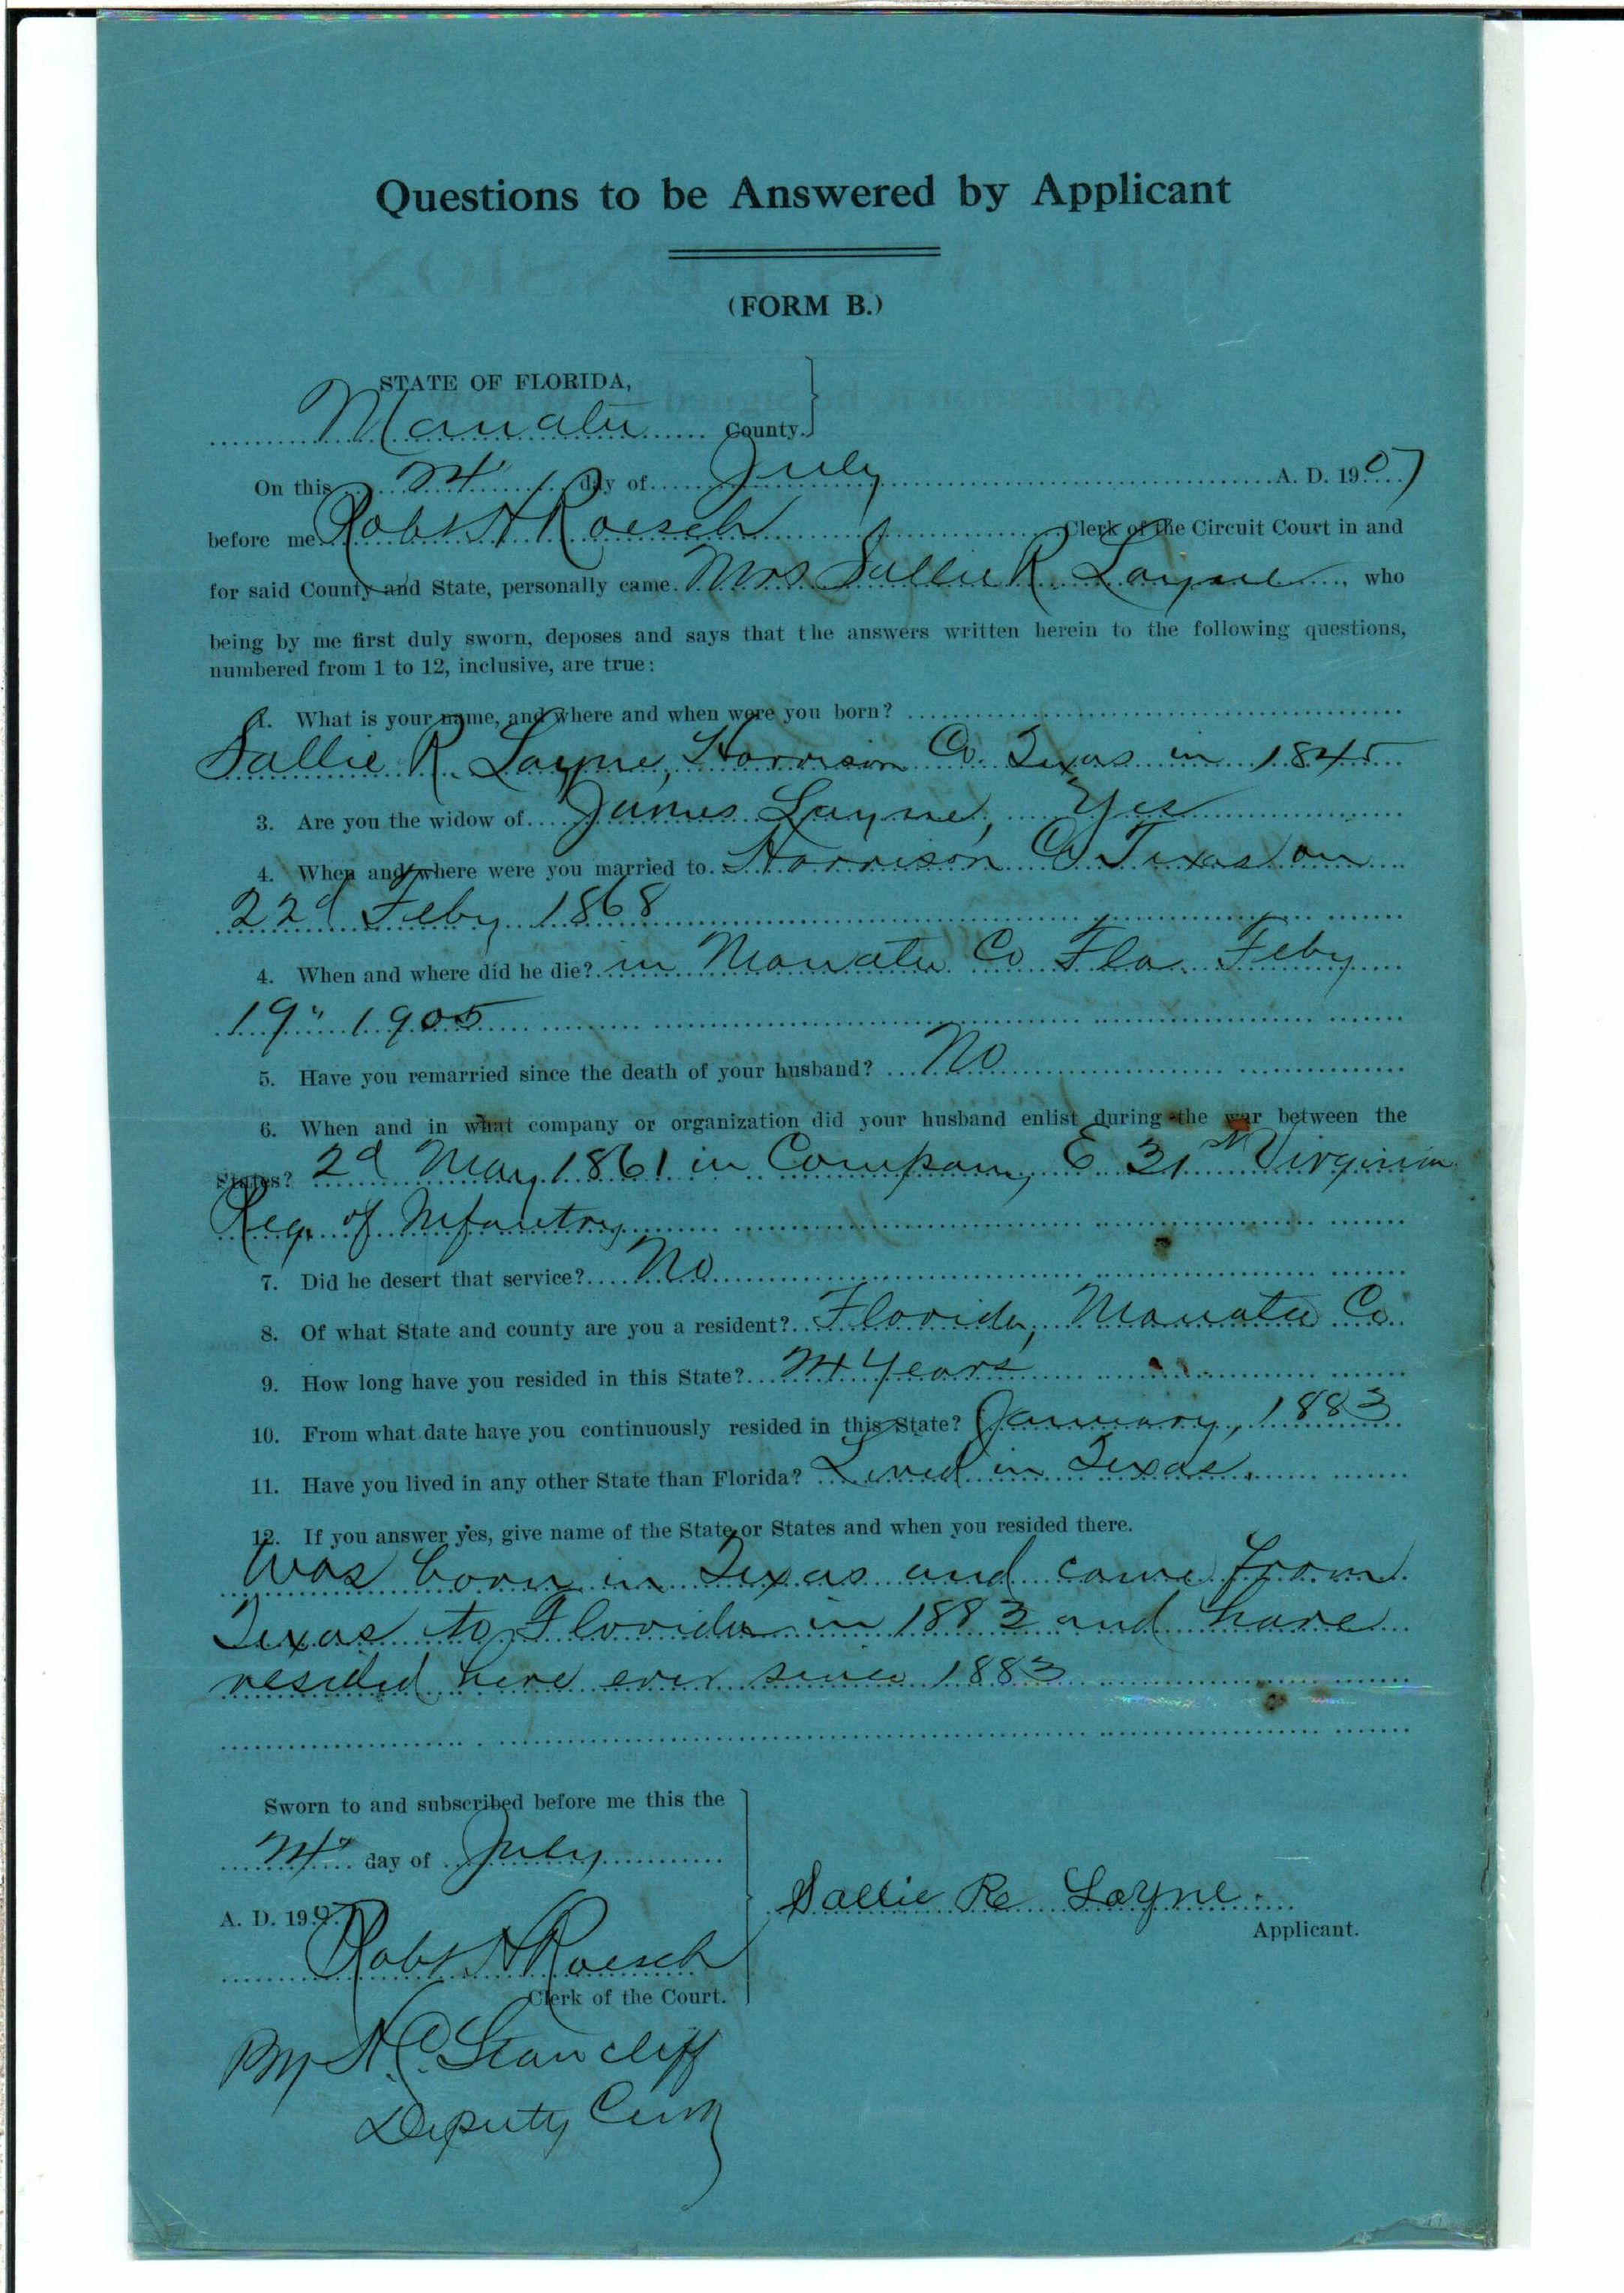 Questions to be Answered by Applicant
(FORM B.)
STATE OF FLORIDA,
Manatee County.
On this 24" day of July A. D. 1907
before me Robt H Roesch Clerk of the Circuit Court in and
for said County and State, personally came Mrs Sallie R Layne, who
being by me first duly sworn, deposes and says that the answers written herein to the following questions,
numbered from 1 to 12, inclusive, are true:
1. What is your name, and where and when were you born?
Sallie R. Layne, Harrison Co. Texas in 1845
3. Are you the widow of James Layne, Yes
4. When and where were you married to Harrison Co Texas on
22d Feby 1868
4. When and where did he die? in Manatee Co Fla. Feby
19" 1905
5. Have you remarried since the death of your husband? No
6. When and in what company or organization did your husband enlist during the war between the
States? 2d May 1861 in Company E 31st Virginia
Reg. of Infantry
7. Did he desert that service? No
8. Of what State and county are you a resident? Florida, Manatee Co.
9. How long have you resided in this State? 24 Years
10. From what date have you continuously resided in this State? January, 1883
11. Have you lived in any other State than Florida? Lived in Texas.
12. If you answer yes, give name of the State or States and when you resided there.
Was born in Texas and came from
Texas to Florida in 1883 and have
resided here ever since 1883
Sworn to and subscribed before me this the
24" day of July
A. D. 1907
Sallie R. Layne.
Applicant.
Robt H Roesch
Clerk of the Court.
By H. C. Stancliff
Deputy Clerk